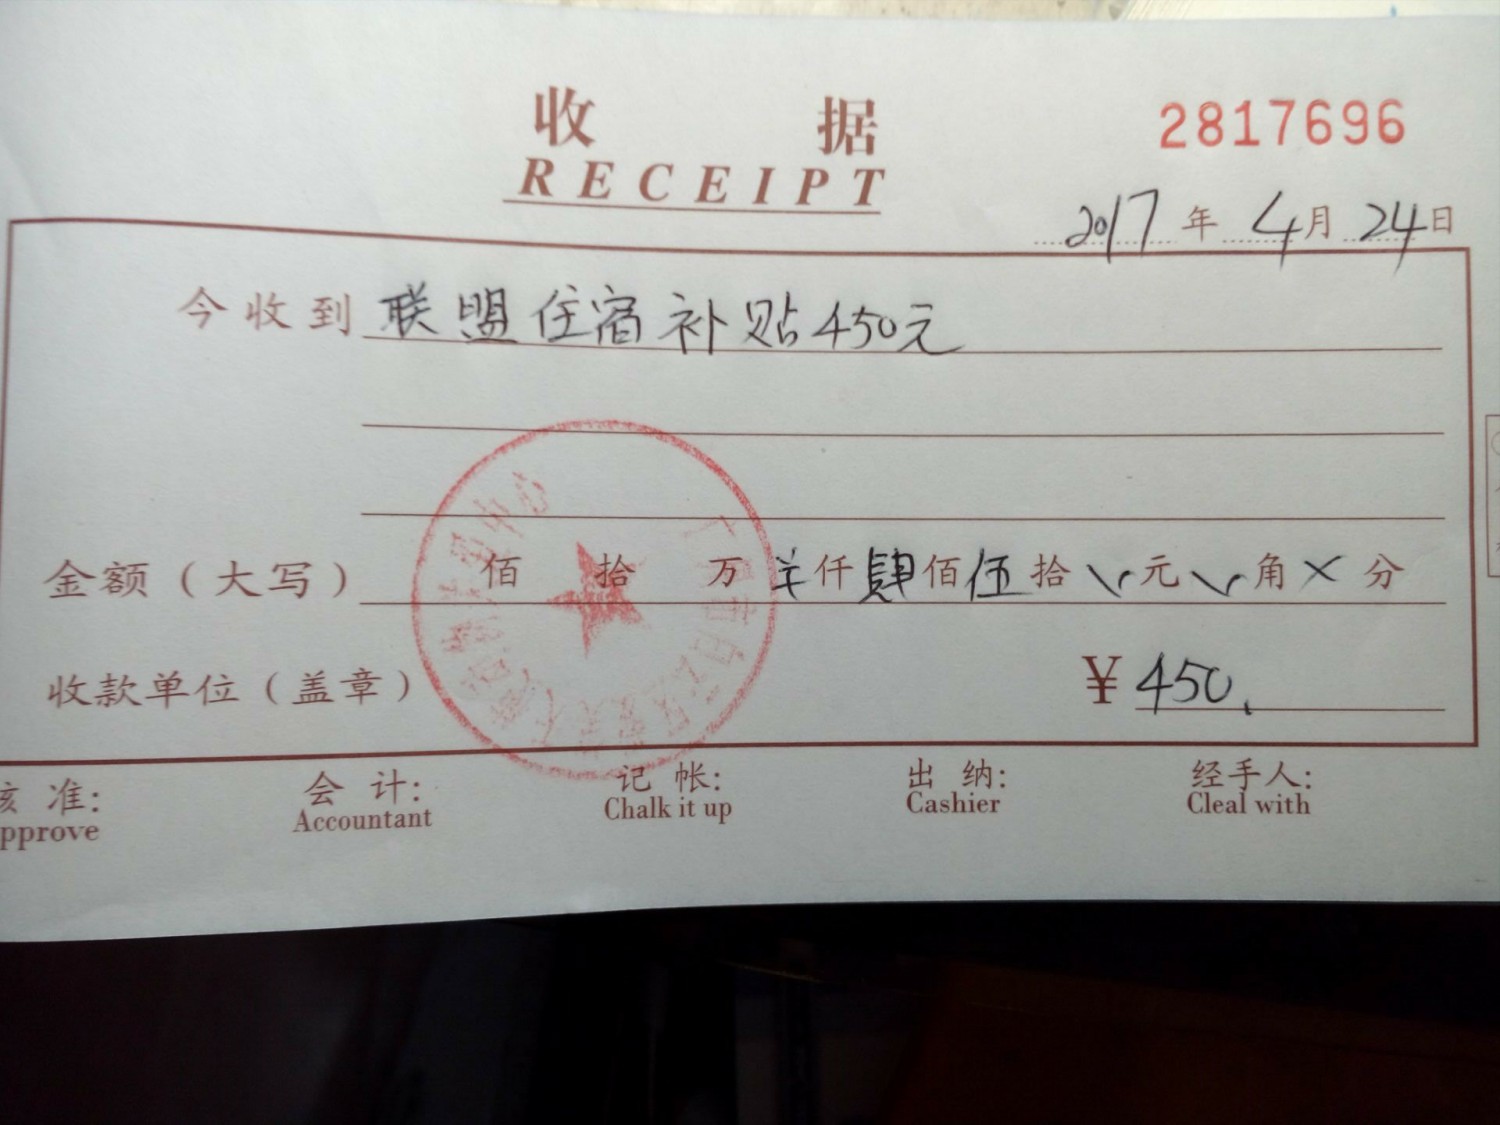 收据
2817696
RECEIPT
2017年4月24日
今收到 联盟住宿补贴450元
金额（大写） 佰 拾 万 仟肆佰伍拾 元 角 × 分
收款单位（盖章） ¥450
核准: 会计: 记帐: 出纳: 经手人:
pprove Accountant Chalk it up Cashier Cleal with